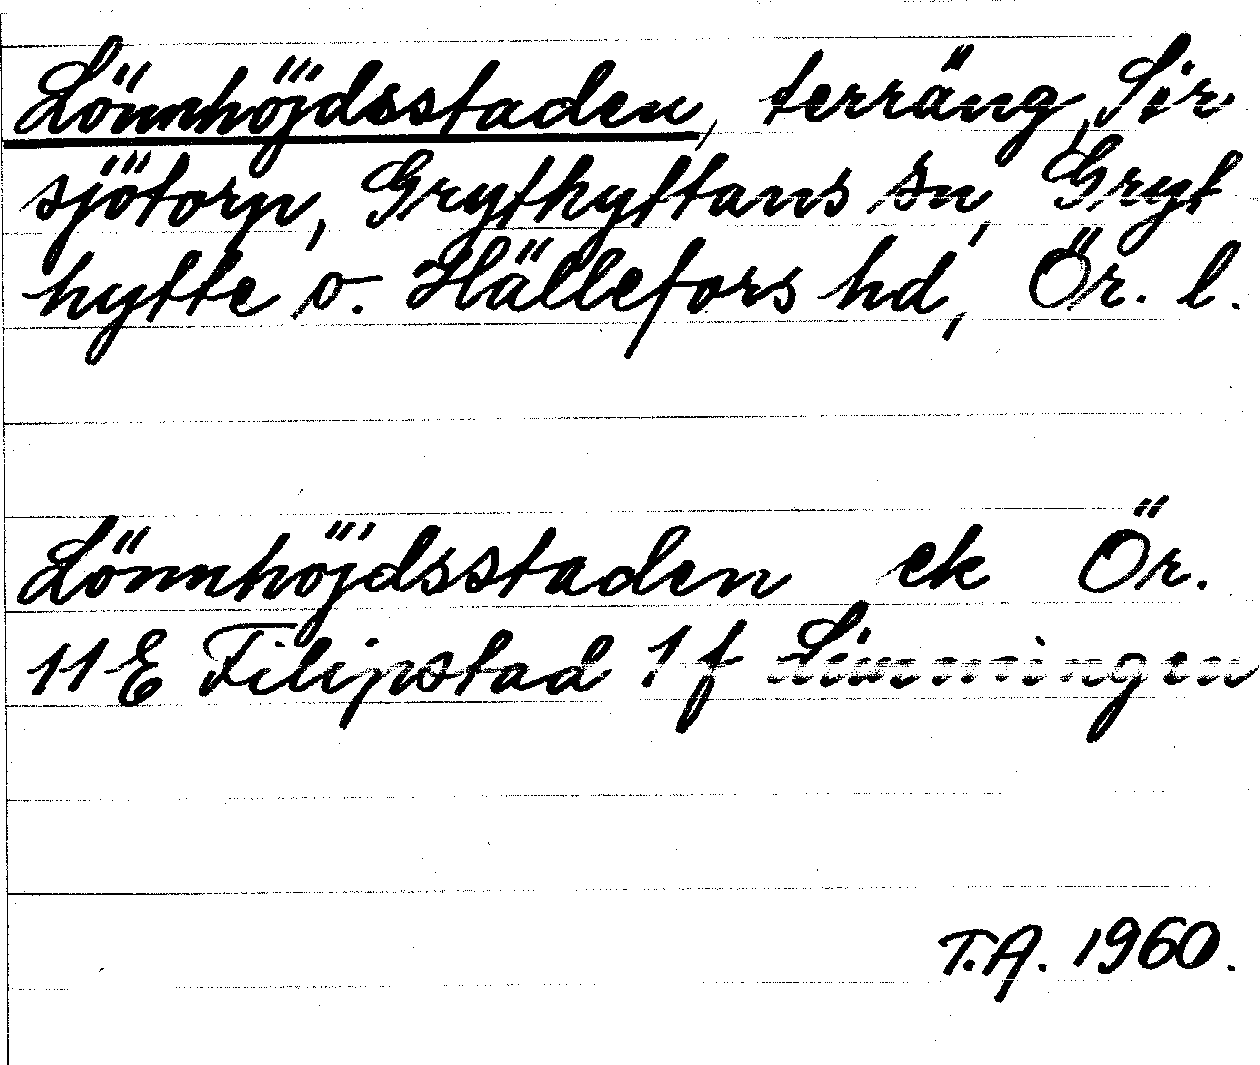 Lönnhöjdsstaden, terräng, Sir
sjötorp, Grythyttans sn, Gryt
hytte o. Hällefors hd, Ör. l.
Lönnhöjdsstaden ek Ör.
11E Filipstad 1f Limmingen
T.A. 1960.